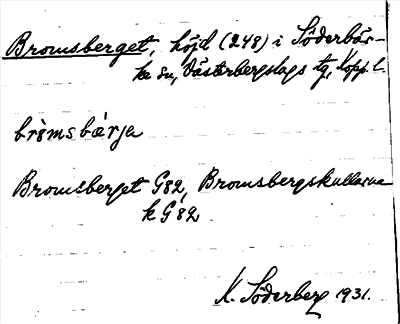 Bromsberget, höjd (248) i Söderbär-
ke sn, Västerbergslags tg, Kopp. l.
bròmsbærja
Bromsberget G82, Bromsbergskullarna
k G82
K. Söderberg 1931.